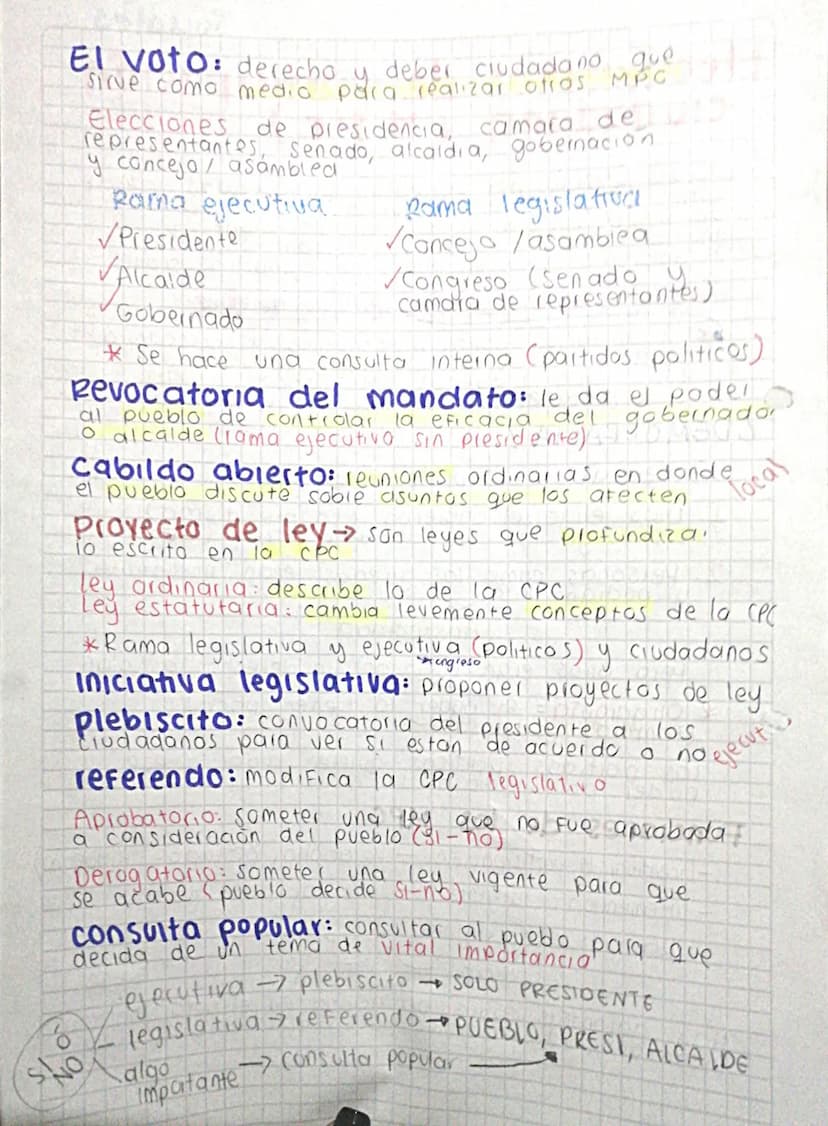 El voto: derecho y deber ciudadano que
sirve como medio para realizar otros MPC
Elecciones de presidencia, camara de
representantes, senado, alcaldia, gobernacion
y concejo/ asamblea
Rama ejecutiva
Rama legislativa
✓Presidente
✓Concejo /asamblea
✓Alcalde
✓Congreso (senado y
camara de representantes)
✓Gobernado
* Se hace una consulta interna (partidos politicos)
Revocatoria del mandato: le da el poder
al pueblo de controlar la eficacia del gobernador
o alcalde (rama ejecutiva sin presidente)
Cabildo abierto: reuniones ordinarias en donde
el pueblo discute sobre asuntos que los afecten local
Proyecto de ley→ son leyes que profundiza.
lo escrito en la CPC
Ley ordinaria: describe lo de la CPC
Ley estatutaria: cambia levemente conceptos de la CPC
*Rama legislativa y ejecutiva (politicos) y ciudadanos
Iniciativa legislativa: proponer proyectos de ley
plebiscito: convocatoria del presidente a los
ciudadanos para ver si estan de acuerdo o no
referendo: modifica la CPC legislativo
Aprobatorio: someter una ley que no fue aprobada
a consideración del pueblo (si-no)
Derogatorio: someter una ley vigente para que
se acabe (pueblo decide si-no)
consulta popular: consultar al pueblo para que
decida de un tema de vital importancia
SI O NO
ejecutiva → plebiscito → SOLO PRESIDENTE
legislativa → referendo → PUEBLO, PRESI, ALCALDE
algo
impotante → consulta popular →